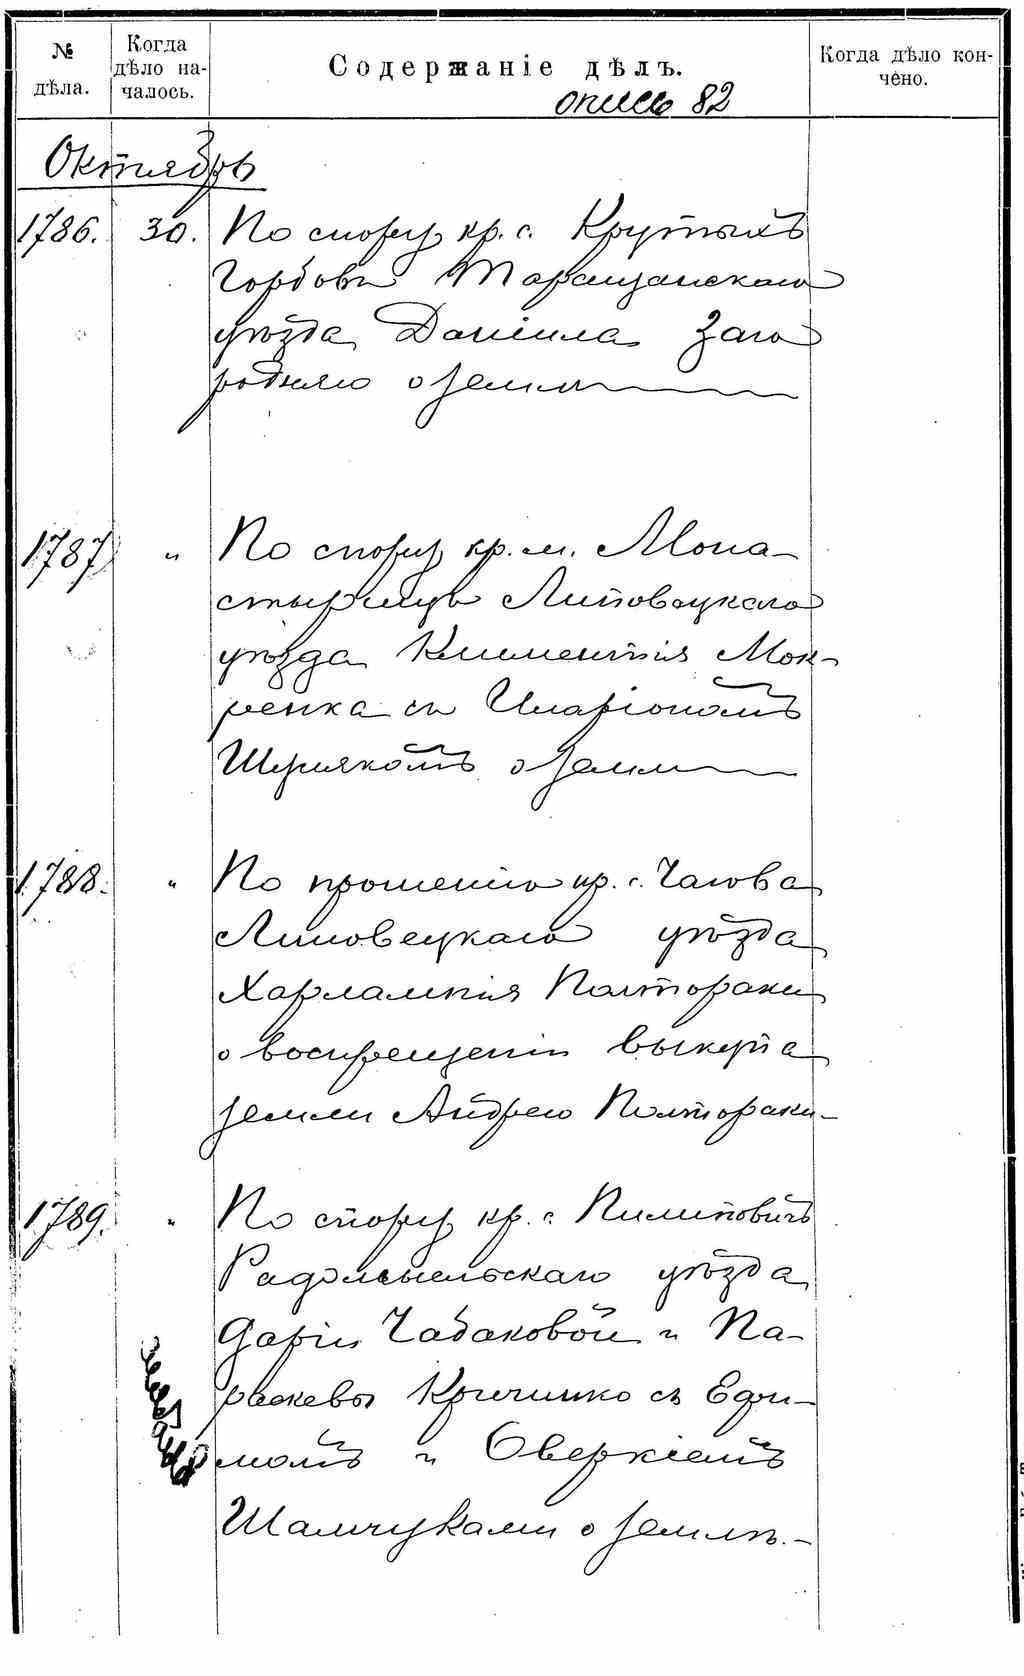 № дѣла. Когда дѣло началось. Содержаніе дѣлъ. Когда дѣло кончено.
опись 82
Октябрь
1786. 30. По спору кр. с. Крутыхъ
Горбовъ Таращанскаго
уѣзда Даніила Заго
родняго о земл
1787 " По спору кр. м. Мона-
стырищъ Липовецкаго
уѣзда Климентія Мок-
ренка съ Иларіономъ
о земл
1788. " По прошенію кр. с. Чагова
Липовецкаго уѣзда
Харлампія Полтораки
о воспрещеніи выкупа
земли Андрею Полтораки-
1789. " По спору кр. с. Пилиповичъ
Радомысльскаго уѣзда
Даріи Чабаковой и Па-
раскевы Кричишко съ Ефи-
момъ и Оверкіемъ
Шамчуками о землѣ.-